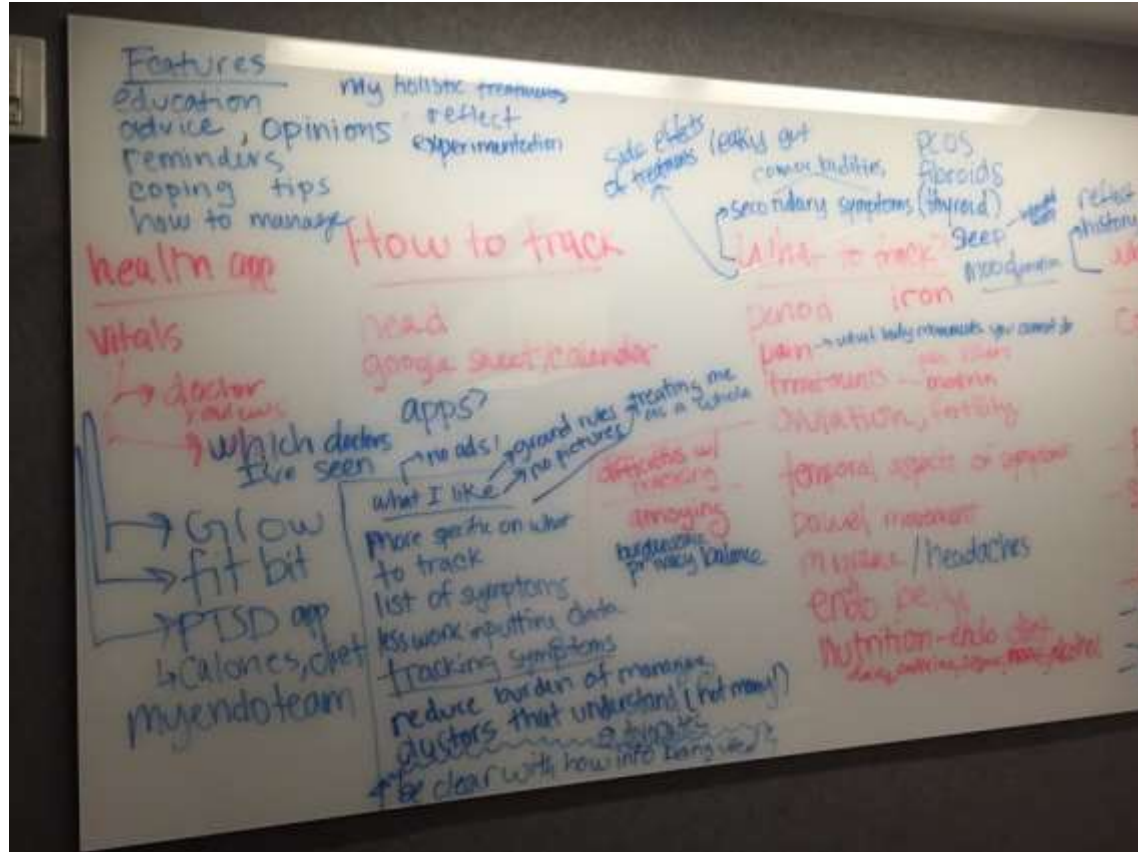 Features
education
advice, opinions
reminders
coping tips
how to manage
my holistic treatments
reflect
experimentation
side effects
of treatments
leaky gut
comorbidities
secondary symptoms (thyroid)
PCOS
fibroids
sleep
reflect
history
health app
vitals
doctor
reviews
which doctors
I've seen
Glow
fit bit
PTSD app
calories, diet
myendoteam
How to track
head
google sheet/calendar
apps?
no ads!
ground rules
no pictures
treating me
as a whole
what I like
more specific on what
to track
list of symptoms
less work inputting data
tracking symptoms
reduce burden of managing
that understand (not many!)
be clear with how info being used
difficulties w/
tracking
annoying
burdensome
privacy balance
What to track?
period
iron
pain
what body movements you cannot do
treatments
ovulation, fertility
temporal aspects of
bowel movement
/headaches
endo belly
nutrition-endo diet
alcohol